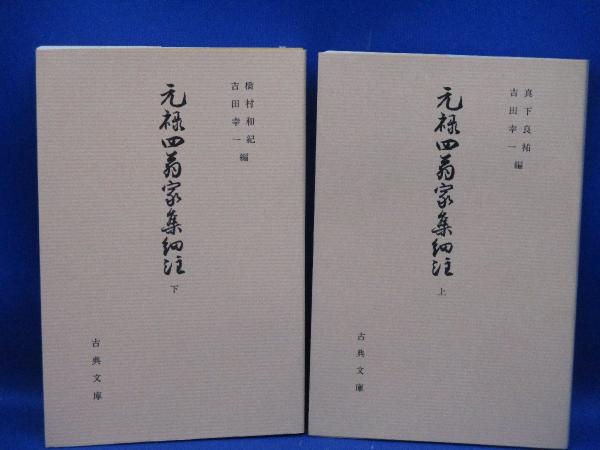 真下良祐
吉田幸一編
元禄四家集細注
上
古典文庫
橋村和紀
吉田幸一編
元禄四翁家集細注
下
古典文庫